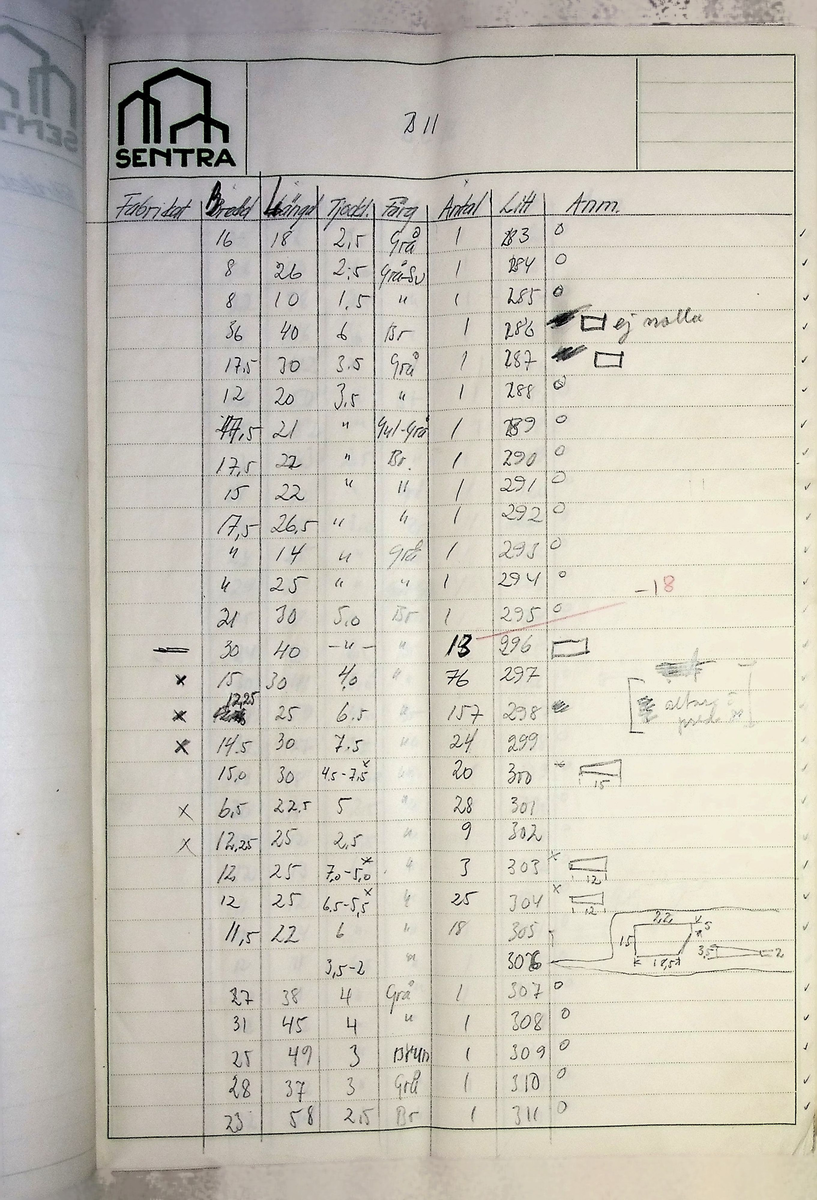 SENTRA
B 11
Fabrikat Bredd Längd Tjockl. Färg Antal Litt Anm.
16 18 2,5 Grå 1 283 o
8 26 2,5 Grå-Sv 1 284 o
8 10 1,5 " 1 285 o
36 40 6 Br 1 286 ej nolla
17,5 30 3,5 Grå 1 287
12 20 3,5 " 1 288 o
17,5 21 " Gul-Grå 1 289 o
17,5 22 " Br. 1 290 o
15 22 " " 1 291 o
17,5 26,5 " " 1 292 o
" 14 " Grå 1 293 o
" 25 " " 1 294 o
-18
21 30 5,0 Br 1 295 o
— 30 40 -"- " 13 296
x 15 30 4,0 " 76 297
x 12,25 25 6,5 " 157 298
x 14,5 30 7,5 " 24 299
15,0 30 4,5-7,5 x " 20 300 15
x 6,5 22,5 5 " 28 301
x 12,25 25 2,5 " 9 302
12 25 7,0-5,0 x " 3 303 x 12
12 25 6,5-5,5 x " 25 304 x 12
11,5 22 6 " 18 305
22 5 15 18,5 3,5 2
3,5-2 " 306
27 38 4 Grå 1 307 o
31 45 4 " 1 308 o
25 49 3 Brun 1 309 o
28 37 3 Grå 1 310 o
23 58 2,5 Br 1 311 o